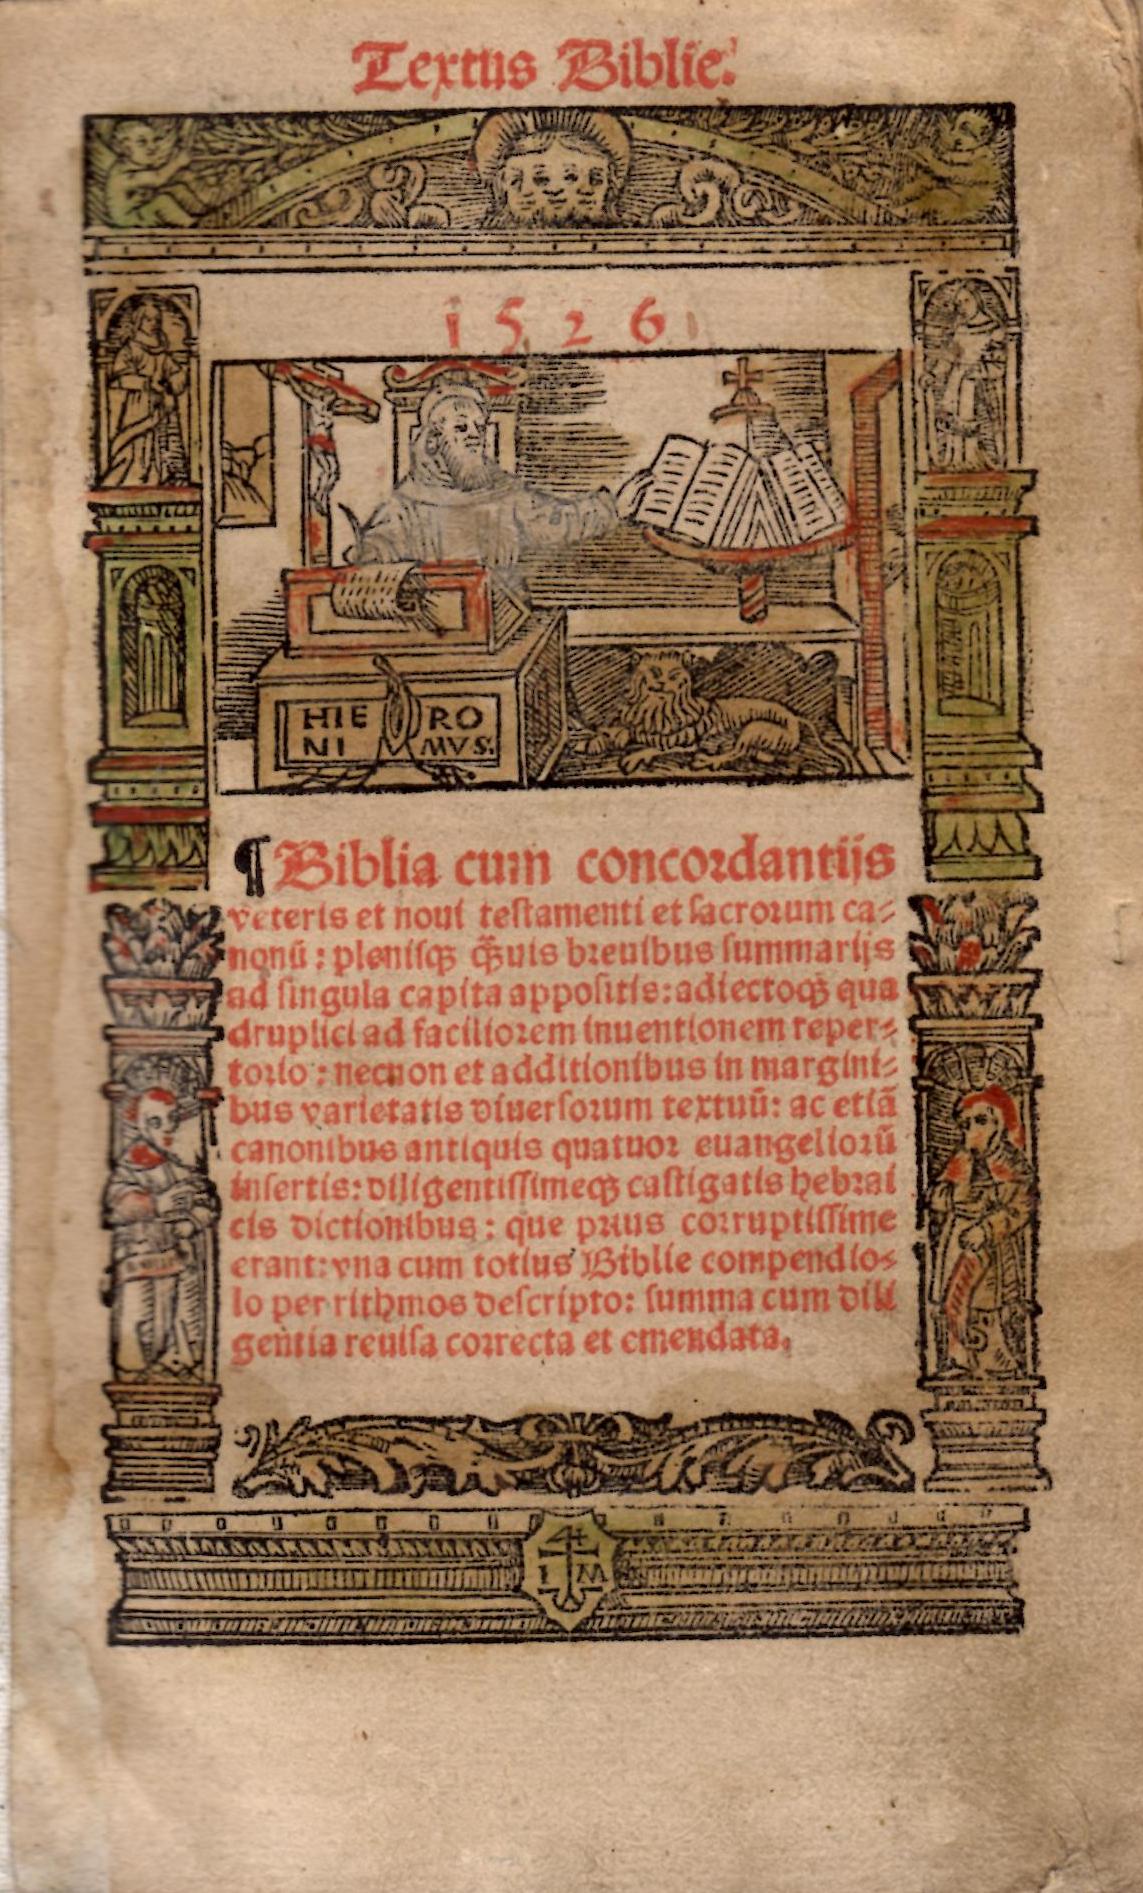 Textus Biblie.
1526
HIERO
NIMVS.
¶ Biblia cum concordantijs
veteris et noui testamenti et sacrorum ca-
nonū: plenisqȝ q̄̃uis breuibus summarijs
ad singula capita appositis: adiectoqȝ qua
druplici ad faciliorem inuentionem reper-
torio: necnon et additionibus in margini-
bus varietatis diuersorum textuū: ac etiā
canonibus antiquis quatuor euangeliorū
insertis: diligentissimeqȝ castigatis hebrai
cis dictionibus: que prius corruptissime
erant: vna cum totius Biblie compendio-
lo per rithmos descripto: summa cum dili
gentia reuisa correcta et emendata.
I M